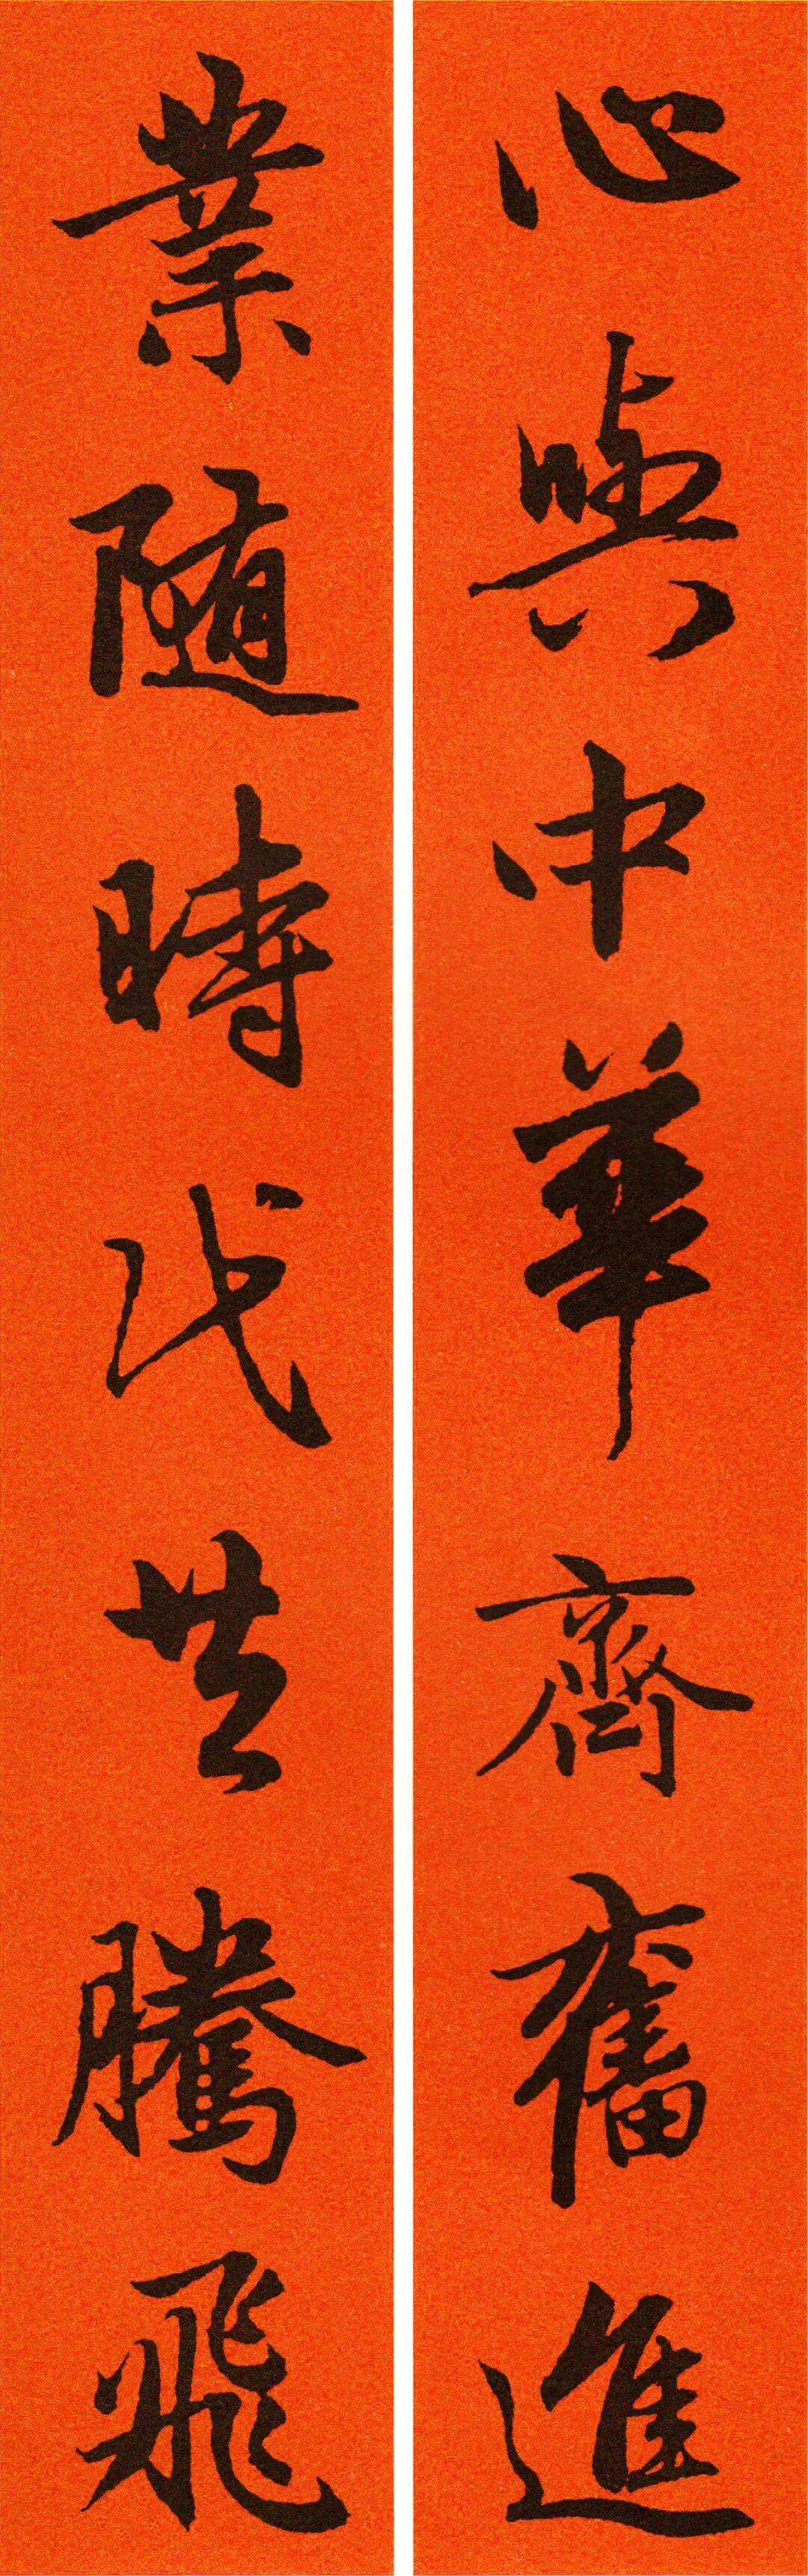 心與中華齊奮進
業隨時代共騰飛